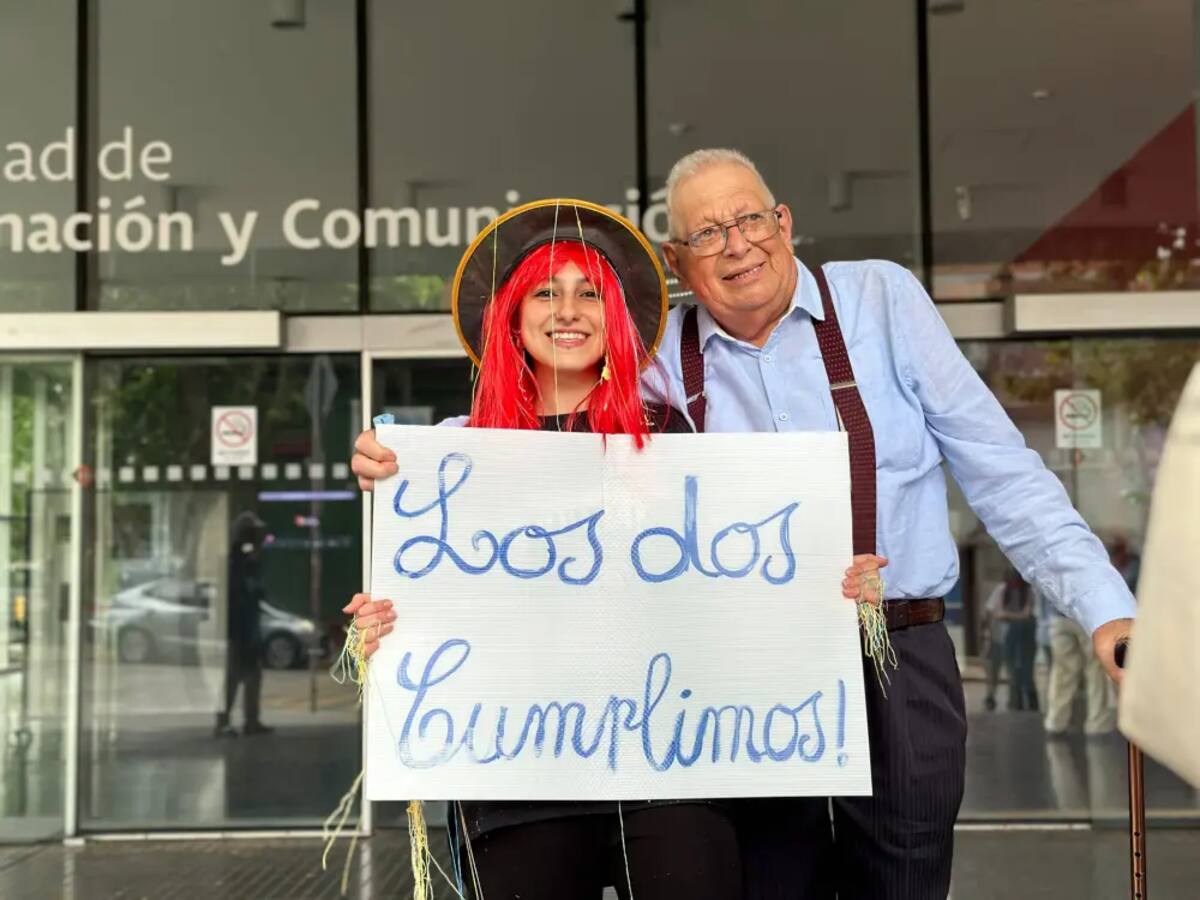 ad de
mación y Comunicació
Los dos
Cumplimos!